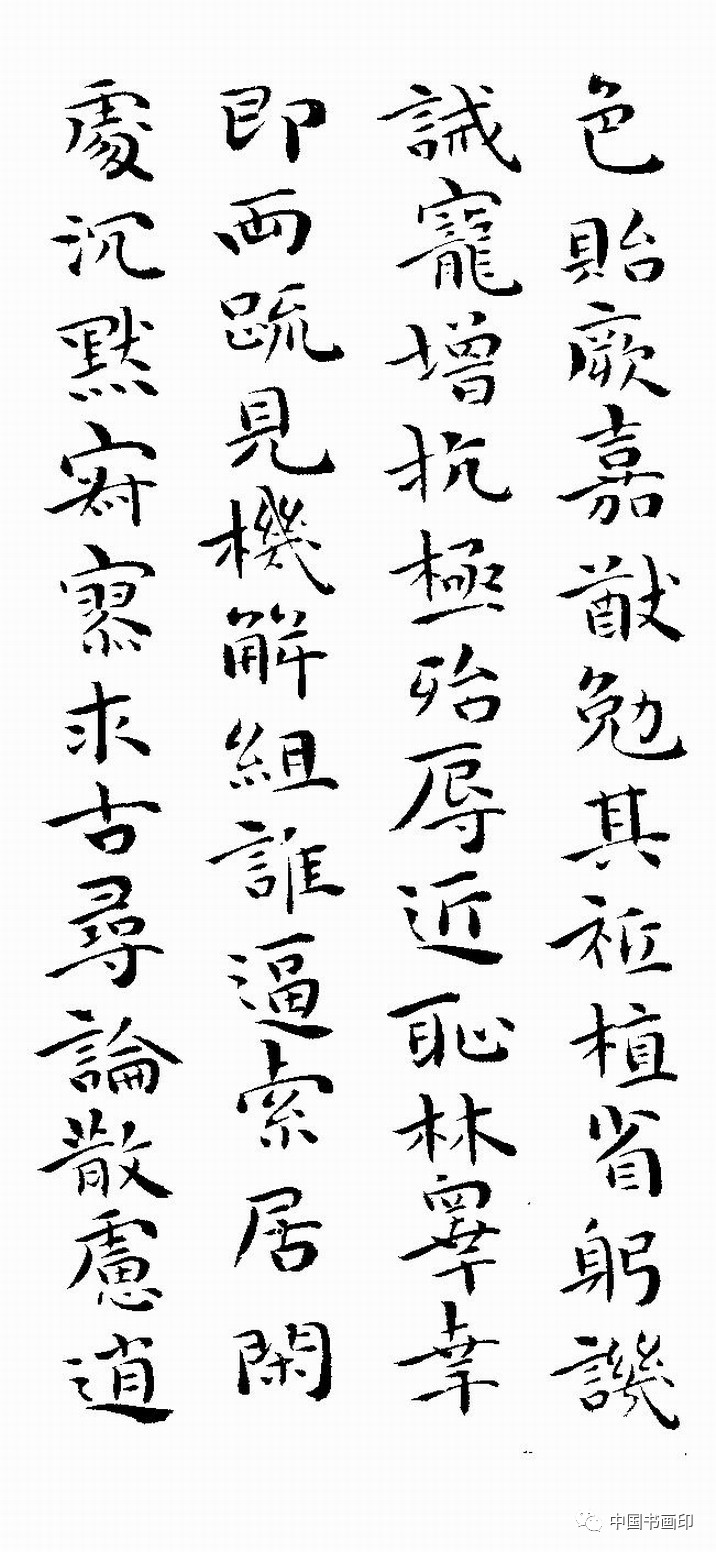 色貽厥嘉猷勉其祗植省躬譏
誡寵增抗極殆辱近恥林睾幸
即兩疏見機解組誰逼索居閑
處沉默寂寥求古尋論散慮逍
中国书画印